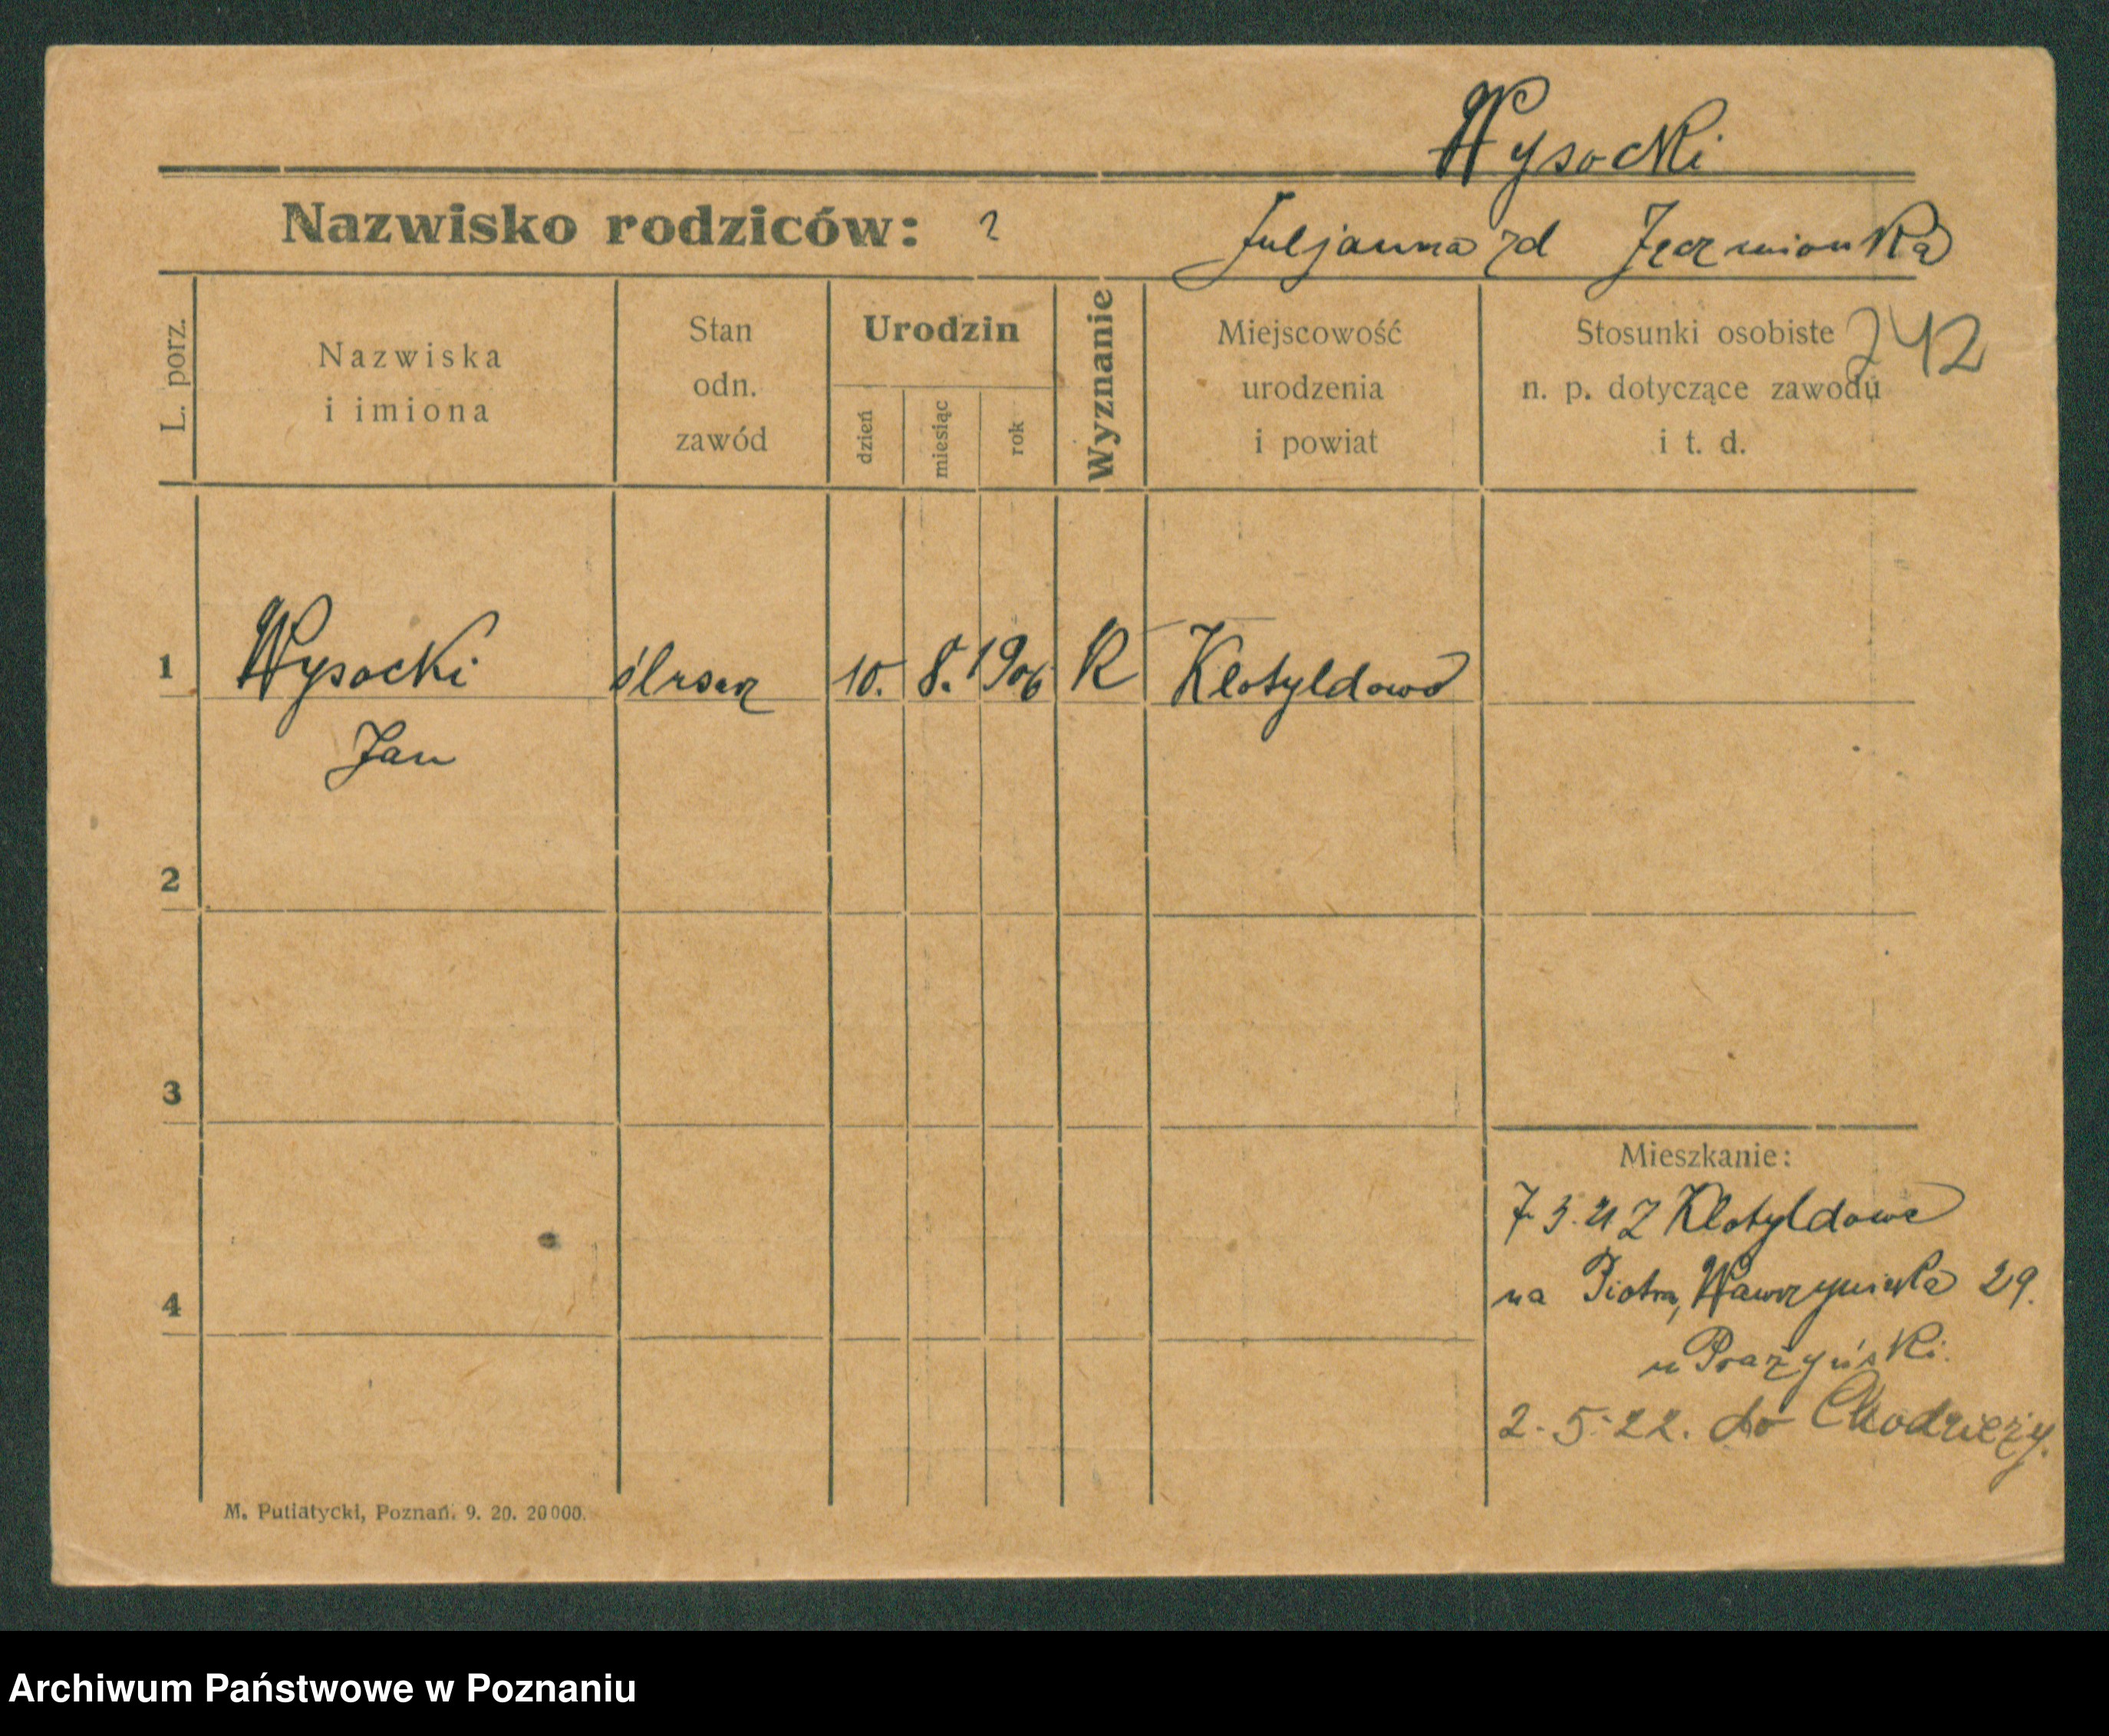 Wysocki
Nazwisko rodziców: ? Juljanna zd Jęczmionka
L. porz.
Nazwiska
i imiona
Stan
odn.
zawód
Urodzin
dzień
miesiąc
rok
Wyznanie
Miejscowość
urodzenia
i powiat
Stosunki osobiste
n. p. dotyczące zawodu
i t. d.
242
1 Wysocki ślusarz 10. 8. 1906 K Klotyldowo
Jan
2
3
4
Mieszkanie:
7. 3. 21 Z Klotyldowa
na Piotra Wawrzyniaka 29.
u Prażyński.
2. 5. 22. do Chodzieży.
M. Putiatycki, Poznań. 9. 20. 20000.
Archiwum Państwowe w Poznaniu